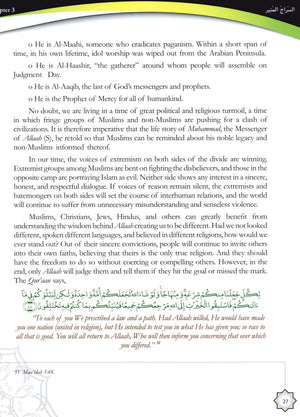 pter 3
السراج المنير
o He is Al-Maahi, someone who eradicates paganism. Within a short span of
time, in his own lifetime, idol worship was wiped out from the Arabian Peninsula.
o He is Al-Haashir, "the gatherer" around whom people will assemble on
Judgment Day.
o He is Al-Aaqib, the last of God's messengers and prophets.
o He is the Prophet of Mercy for all of humankind.
No doubt, we are living in a time of great political and religious turmoil, a time
in which fringe groups of Muslims and non-Muslims are pushing for a clash of
civilizations. It is therefore imperative that the life story of Muhammad, the Messenger
of Allaah (S), be retold so that Muslims can be reminded about his noble legacy and
non-Muslims informed thereof.
In our time, the voices of extremism on both sides of the divide are winning.
Extremist groups among Muslims are bent on fighting the disbelievers, and those in the
opposite camp are portraying Islam as evil. Neither side shows any interest in a sincere,
honest, and respectful dialogue. If voices of reason remain silent, the extremists and
hatemongers on both sides will set the course of interhuman relations, and the world
will continue to suffer from unnecessary misunderstanding and senseless violence.
Muslims, Christians, Jews, Hindus, and others can greatly benefit from
understanding the wisdom behind Allaah creating us to be different. Had we not looked
different, spoken different languages, and believed in different religions, how would we
ever stand out? Out of their sincere convictions, people will continue to invite others
into their own faiths, believing that theirs is the only true religion. And they should
have the freedom to do so without coercing or compelling others. However, in the
end, only Allaah will judge them and tell them if they hit the goal or missed the mark.
The Qur'aan says,
لِكُلٍّ جَعَلْنَا مِنكُمْ شِرْعَةً وَمِنْهَاجًا وَلَوْ شَاءَ اللَّهُ لَجَعَلَكُمْ أُمَّةً وَاحِدَةً وَلَٰكِن لِّيَبْلُوَكُمْ فِي مَا
ءَاتَاكُمْ فَاسْتَبِقُوا الْخَيْرَاتِ إِلَى اللَّهِ مَرْجِعُكُمْ جَمِيعًا فَيُنَبِّئُكُم بِمَا كُنتُمْ فِيهِ تَخْتَلِفُونَ
"To each of you We prescribed a law and a path. Had Allaah willed, He would have made
you one nation (united in religion), but He intended to test you in what He has given you; so race to
all that is good. You will all return to Allaah, Who will then inform you concerning that over which
you differed."
Maa'idah 5:48.
27